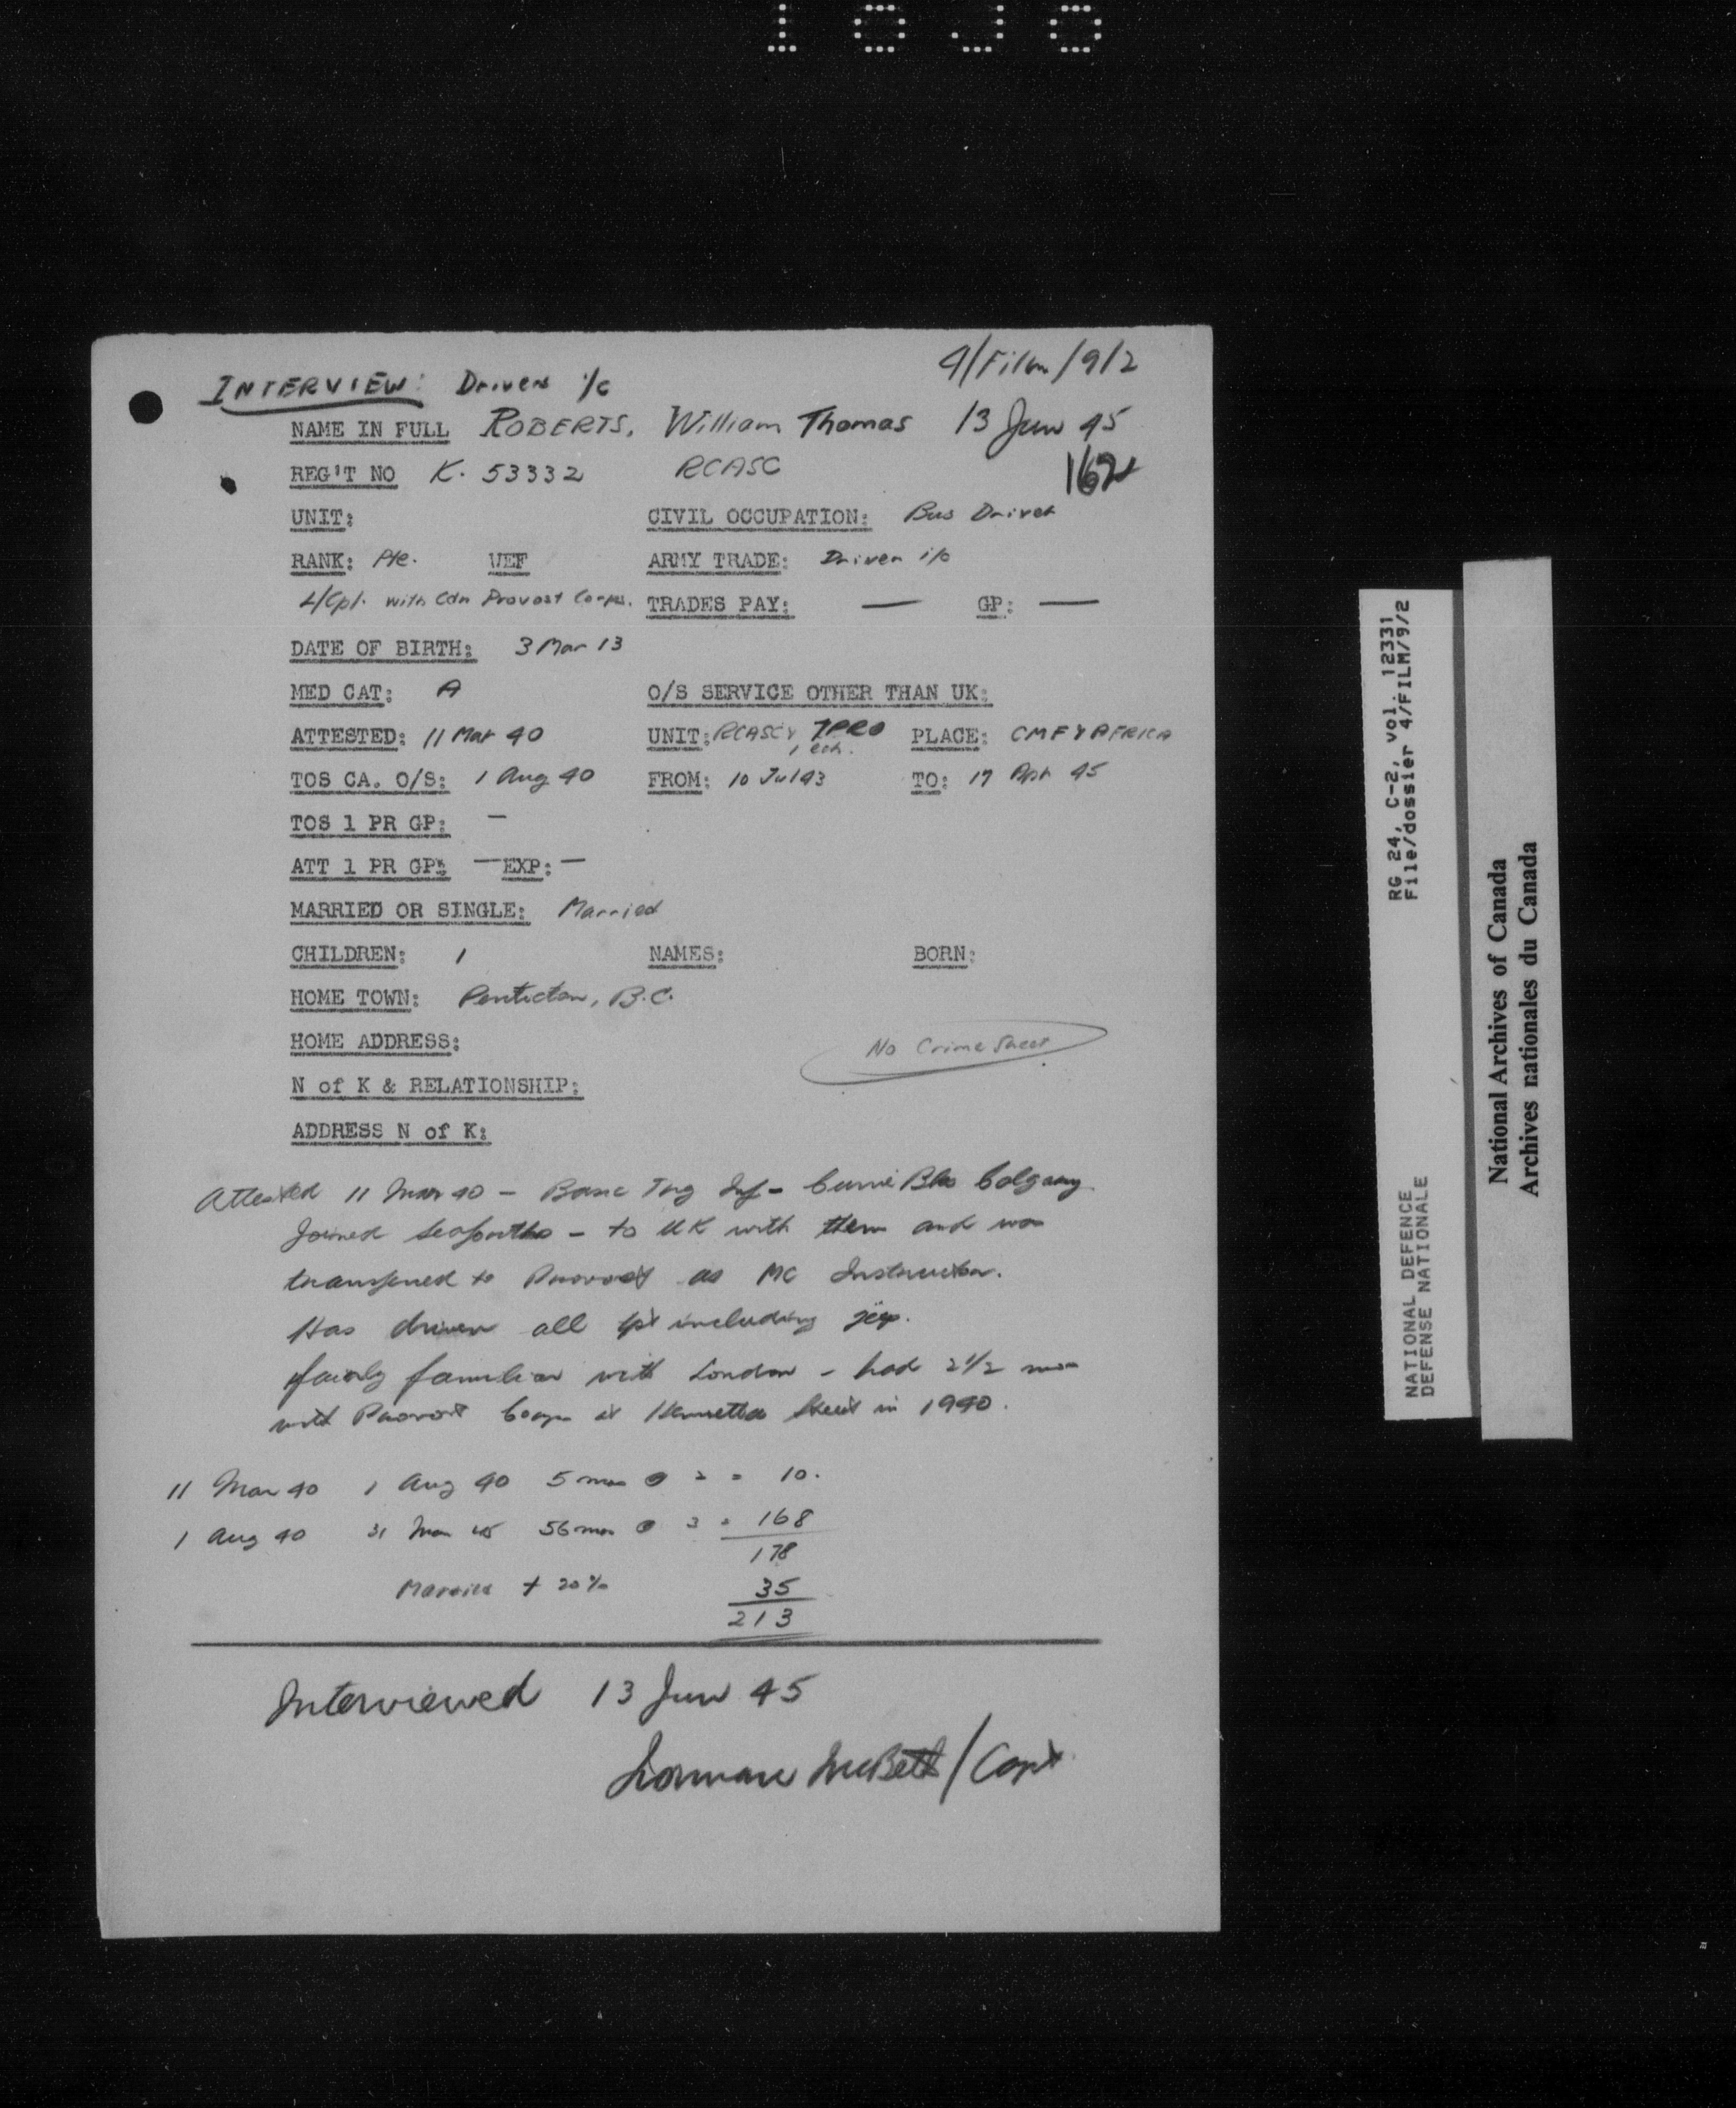 4/Film/9/2
INTERVIEW: Driver i/c
NAME IN FULL ROBERTS, William Thomas 13 Jun 45
REG'T NO K. 53332 RCASC 162
UNIT: CIVIL OCCUPATION: Bus Driver
RANK: Pte. UEF ARMY TRADE: Driver i/c
L/Cpl. with Cdn Provost Corps. TRADES PAY: — GP: —
DATE OF BIRTH: 3 Mar 13
MED CAT: A O/S SERVICE OTHER THAN UK:
ATTESTED: 11 Mar 40 UNIT: RCASC PLACE: CMF & AFRICA
1 ech.
TOS CA. O/S: 1 Aug 40 FROM: 10 Jul 43 TO: 17 Apr 45
TOS 1 PR GP: —
ATT 1 PR GP: — EXP: —
MARRIED OR SINGLE: Married
CHILDREN: 1 NAMES: BORN:
HOME TOWN: Penticton, B.C.
HOME ADDRESS: No Crime Sheet
N of K & RELATIONSHIP:
ADDRESS N of K:
Attested 11 Mar 40 – Basic Tng Inf – Currie Bks Calgary
Joined Seaforths – to UK with them and was
transferred to Provost as MC Instructor.
Has driven all including jeep.
fairly familiar with London – had 2 1/2 mos
with Provost Corps at Henrietta Street in 1940.
11 Mar 40 1 Aug 40 5 mos @ 2 = 10.
1 Aug 40 31 Mar 45 56 mos @ 3 = 168
178
Married + 20% 35
213
Interviewed 13 Jun 45
McBeth/Capt
RG 24, C-2, vol. 12331
File/dossier 4/FILM/9/2
NATIONAL DEFENCE
DEFENSE NATIONALE
National Archives of Canada
Archives nationales du Canada